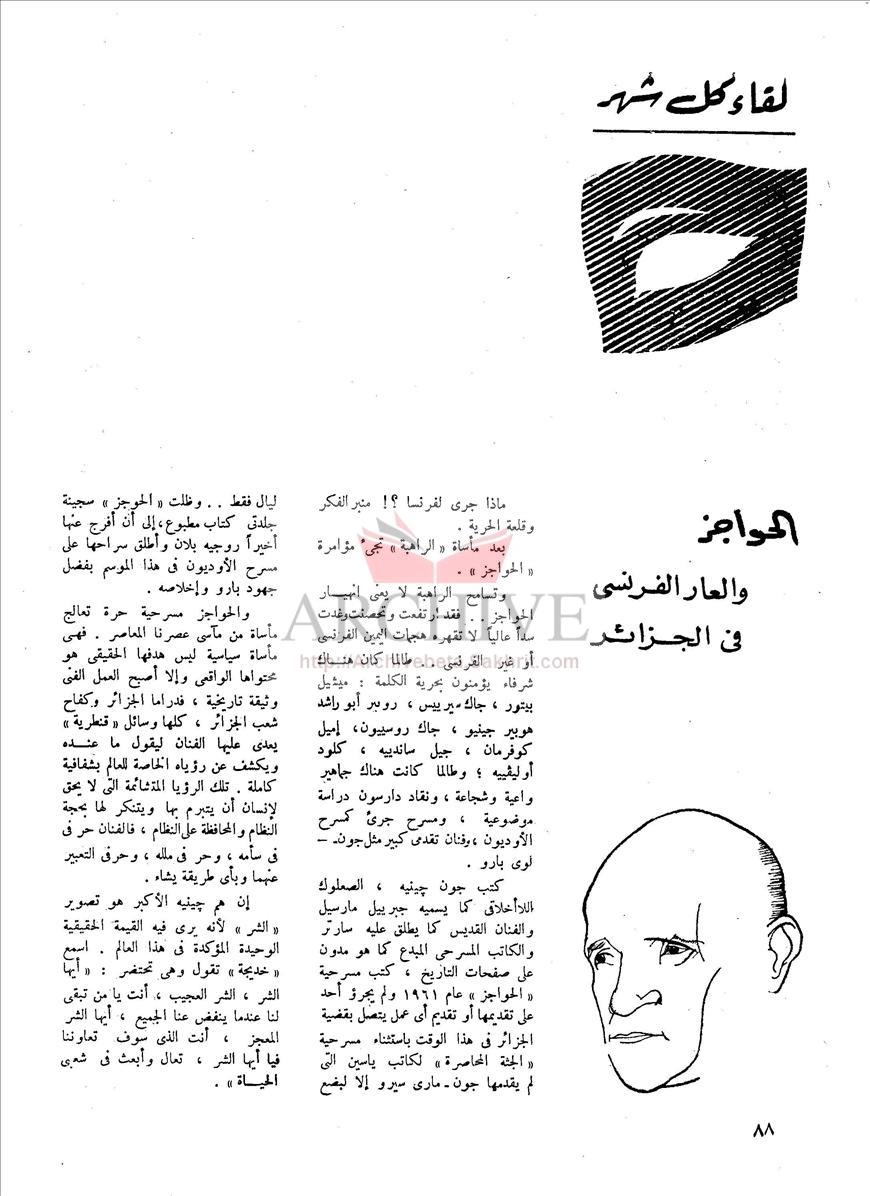 لقاء كل شهر
الحواجز
والعار الفرنسى
فى الجزائر
ماذا جرى لفرنسا ؟! منبر الفكر
وقلعة الحرية .
بعد مأساة « الراهبة » تجىء مؤامرة
« الحواجز » .
وتسامح الراهبة لا يعنى انهيار
الحواجز . . فقد ارتفعت وتحصنت وغدت
سداً عالياً لا تقهره هجمات اليمين الفرنسى
أو غير الفرنسى . . طالما كان هناك
شرفاء يؤمنون بحرية الكلمة : ميشيل
بيتور ، جاك سيرييس ، روبير أبو راشد
هوبير جينيو ، جاك روسييون، إميل
كوفرمان ، جيل ساندييه ، كلود
أوليڤييه ؛ وطالما كانت هناك جماهير
واعية وشجاعة ، ونقاد دارسون دراسة
موضوعية ، ومسرح جرئ كمسرح
الأوديون ، وفنان تقدمى كبير مثل جون ـ
لوى بارو .
كتب جون چينيه ، الصعلوك
اللاأخلاقى كما يسميه جبرييل مارسيل
والفنان القديس كما يطلق عليه سارتر
والكاتب المسرحى المبدع كما هو مدون
على صفحات التاريخ ، كتب مسرحية
« الحواجز » عام ١٩٦١ ولم يجرؤ أحد
على تقديمها أو تقديم أى عمل يتصل بقضية
الجزائر فى هذا الوقت باستثناء مسرحية
« الجثة المحاصرة » لكاتب ياسين التى
لم يقدمها جون ـ مارى سيرو إلا لبضع
ليال فقط . . وظلت « الحوجز » سجينة
جلدتي كتاب مطبوع ، إلى أن أفرج عنها
أخيراً روجيه بلان وأطلق سراحها على
مسرح الأوديون فى هذا الموسم بفضل
جهود بارو وإخلاصه .
والحواجز مسرحية حرة تعالج
مأساة من مآسى عصرنا المعاصر . فهى
مأساة سياسية ليس هدفها الحقيقى هو
محتواها الواقعى وإلا أصبح العمل الفنى
وثيقة تاريخية ، فدراما الجزائر وكفاح
شعب الجزائر ، كلها وسائل « قنطرية »
يعدى عليها الفنان ليقول ما عنده
ويكشف عن رؤياه الخاصة للعالم بشفافية
كاملة . تلك الرؤيا المتشائمة التى لا يحق
لإنسان أن يتبرم بها ويتنكر لها بحجة
النظام والمحافظة على النظام ، فالفنان حر فى
فى سأمه ، وحر فى ملله ، وحر فى التعبير
عنهما وبأى طريقة يشاء .
إن هم چينيه الأكبر هو تصوير
« الشر » لأنه يرى فيه القيمة الحقيقية
الوحيدة المؤكدة فى هذا العالم . اسمع
« خديجة » تقول وهى تحتضر : « أيها
الشر ، الشر العجيب ، أنت يا من تبقى
لنا عندما ينفض عنا الجميع ، أيها الشر
المعجز ، أنت الذى سوف تعاوننا
فيا أيها الشر ، تعال وأبعث فى شعبى
الحياة » .
٨٨
ARCHIVE
http://Archivebeta.Sakhrit.com